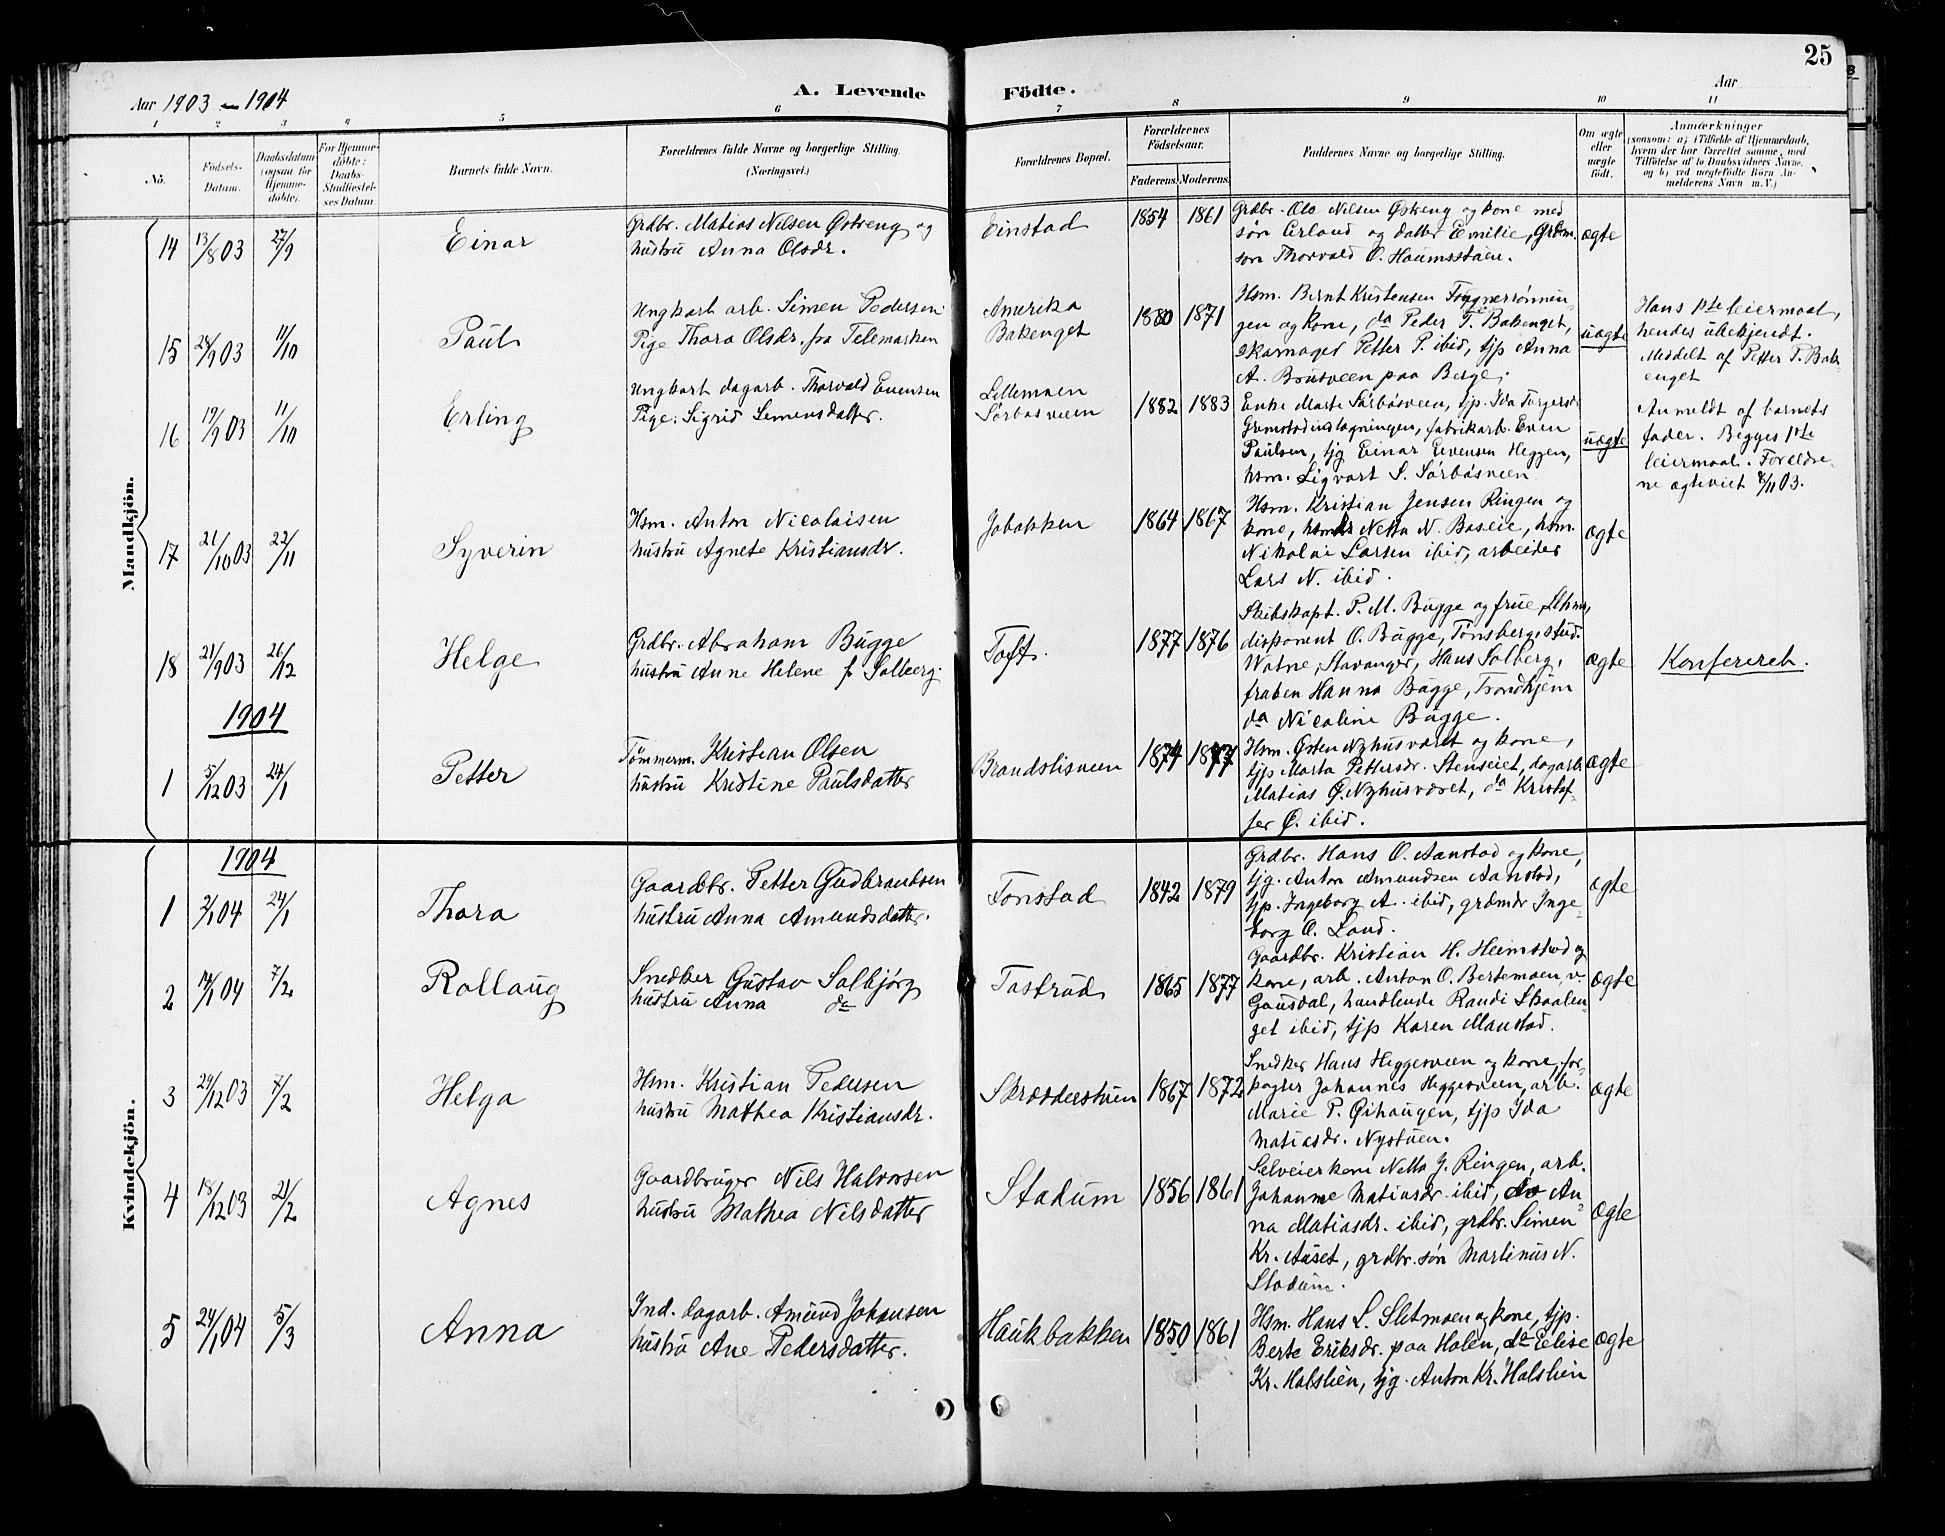 25
Aar 1903 - 1904
A. Levende
Födte.
Aar
1 2 3 4 5 6 7 8 9 10 11
No.
Födsels-
Datum.
Daabsdatum
(ogsaa for
Hjemme-
döbte).
For Hjemme-
döbte:
Daabs-
Stadfæstel-
ses Datum.
Barnets fulde Navn.
Forældrenes fulde Navne og borgerlige Stilling.
(Næringsvei.)
Forældrenes Bopæl.
Forældrenes
Födselsaar.
Faderens. Moderens.
Faddernes Navne og borgerlige Stilling.
Om ægte
eller
uægte
födt.
Anmærkninger
(saasom: a) i Tilfælde af Hjemmedaab,
hvem der har forrettet samme, med
Tilföielse af to Daabsvidners Navne,
og b) ved uægtefödte Börn An-
melderens Navn m. V.)
Mandkjön.
14 13/8 03 27/9 Einar
Grdbr. Matias Nilsen Østreng og
hustru Anna Olsdr.
Einstad 1854 1861
Grdbr. Ole Nilsen Østreng og kone med
søn Erland og datter Emilie, Grdm.
søn Thorvald O. Haumsstuen.
ægte
15 28/9 03 11/10 Paul
Ungkarl arb. Simen Pedersen
Pige Thora Olsdr. fra Telemarken
Amerika
Bakenget
1880 1871
Hsm. Bernt Kristensen
gen og kone, da Peder P. Bakenget,
skomager Petter P. ibid, tjp Anna
A. Brusveen paa Berge.
uægte
Hans 1ste leiermaal,
hendes ubekjendt.
Meddelt af Petter P. Bak-
enget
16 19/9 03 11/10 Erling
Ungkarl dagarb. Thorvald Evensen
Pige. Sigrid Simensdatter.
Lillemoen
Sørbøsveen
1882 1883
Enke Marte Sørbøsveen, tjp. Ida Torgersdr
fabrikarb. Even
Paulsen, tjg Einar Evensen Heggen,
hsm. Sigvart S. Sørbøsveen
uægte
Anmeldt af barnets
fader. Begges 1ste
leiermaal. Forældre-
ne ægteviet 8/11 03.
17 21/10 03 22/11 Syverin
Hsm. Anton Nicolaisen
hustru Agnete Kristiansdr.
Jobakken 1864 1867
Hsm. Kristian Jensen Ringen og
kone, Netta N. Baseie, hsm.
Nikolai Larsen ibid, arbeider
Lars N. ibid.
ægte
18 21/9 03 26/12 Helge
Grdbr. Abraham Bugge
hustru Anne Helene f. Solberg.
Toft. 1877 1876
Skibskapt. P. M. Bugge og frue, Lthm,
disponent O. Bugge, Tønsberg, stud.
Watne, Stavanger, Hans Solberg,
frøken Hanna Bugge, Trondhjem
da Nicoline Bugge.
ægte
Konfereret.
1904
1 5/12 03 24/1 Petter
Tømmerm. Kristian Olsen
hustru Kristine Paulsdatter
Brandslisveen 1874 1877
Hsm. Østen Nyhusværet og kone,
tjp Marta Pettersdr. Stenseiet, dagarb
Matias Ø. Nyhusværet, da Kristof-
fer Ø. ibid.
ægte
Kvindekjön.
1904
1 2/1 04 24/1 Thora
Gaardbr. Petter Gudbrandsen
hustru Anna Amundsdatter.
Fonstad 1842 1879
Grdbr. Hans O. Aanstad og kone,
tjg. Anton Amundsen Aanstad,
tjp. Ingeborg A. ibid, grdmdr Inge-
borg O. Lund.
ægte
2 14/1 04 7/2 Rollaug
Snedker Gustav Solbjørg
hustru Anna da
Tostrud 1865 1877
Gaardbr. Kristian H. Heimstad og
kone, arb. Anton O. Bertemoen, v.
Gausdal, handlende Randi Skaalen-
get ibid, tjp Karen Maustad.
ægte
3 29/12 03 7/2 Helga
Hsm. Kristian Pedersen
hustru Mathea Kristiansdr.
Skrædderstuen 1867 1872
Snedker Hans Heggesveen og kone, for-
pagter Johannes Heggesveen, arb.
Marie P. Øihaugen, tjp Ida
Matiasdr. Nystuen.
ægte
4 18/12 03 21/2 Agnes
Gaardbruger Nils Halvorsen
hustru Mathea Nilsdatter
Stadum 1856 1861
Selveierkone Netta J. Ringen, arb.
Johanne Matiasdr. ibid, da An-
na Matiasdr. ibid, grdbr. Simen
Kr. Auset, grdbr. søn Martinus N.
Stadum.
ægte
5 24/1 04 5/3 Anna
Ind. dagarb. Amund Johansen
hustru Ane Pedersdatter.
Haukbakken 1850 1861
Hsm. Hans L. Sletmoen og kone, tjp.
Berte Eriksdr. paa Holen, da Elise
Kr. Halslien, tjg. Anton Kr. Halslien
ægte